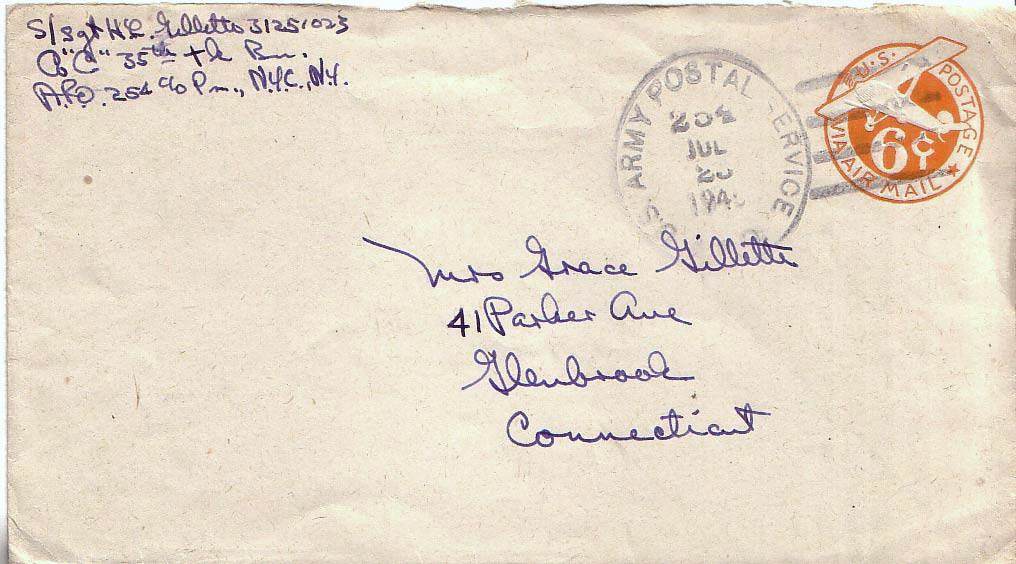 S/Sgt H.L. Gillette 31251023
Co "C" 35th tk Bn.
A.P.O. 254 c/o P.m., N.Y.C., N.Y.
U.S. ARMY POSTAL SERVICE
254
JUL
194
U.S. POSTAGE
6¢
VIA AIR MAIL
Mrs Grace Gillette
41 Parker Ave
Glenbrook
Connecticut